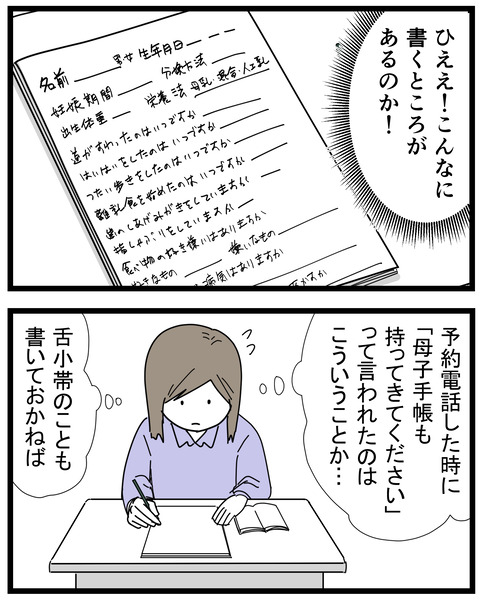 ひええ!こんなに
書くところが
あるのか!
名前 男女 生年月日
妊娠期間 分娩方法
出生体重 栄養法 母乳・混合・人工乳
首がすわったのはいつですか
はいはいをしたのはいつですか
つたい歩きをしたのはいつですか
離乳食を始めたのはいつですか
歯のしあげみがきをしていますか
指しゃぶりをしていますか
食べ物の好き嫌いはありますか
好きなもの 嫌いなもの
病気はありますか
予約電話した時に
「母子手帳も
持ってきてください」
って言われたのは
こういうことか…
舌小帯のことも
書いておかねば